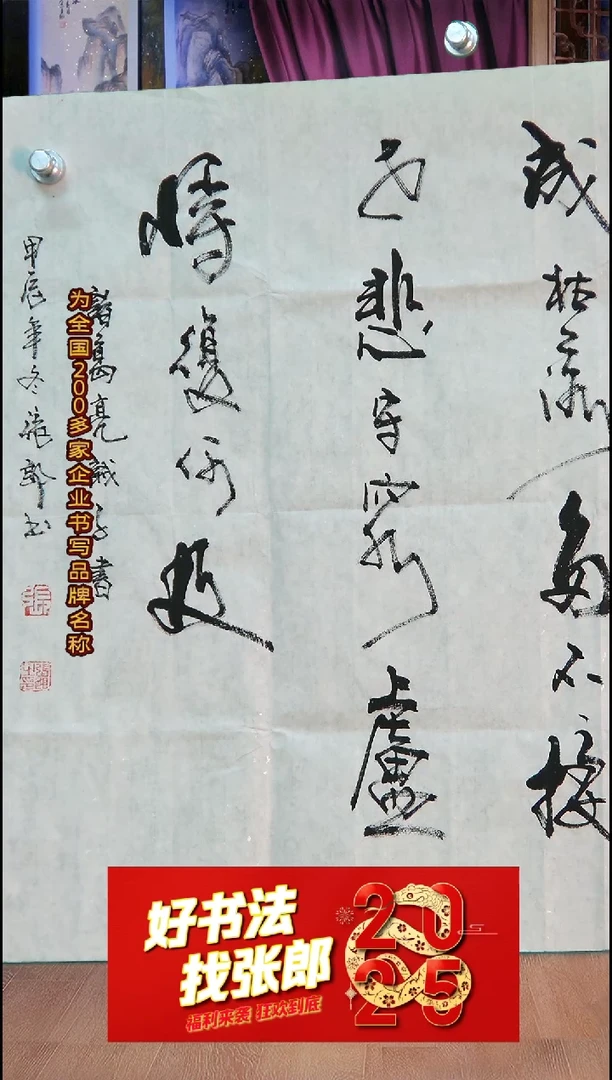 成枯落多不接
世悲守窮盧
將復何及
諸葛亮誡子書
甲辰年冬張郎书
为全国200多家企业书写品牌名称
好书法
找张郎
福利来袭 狂欢到底
2025